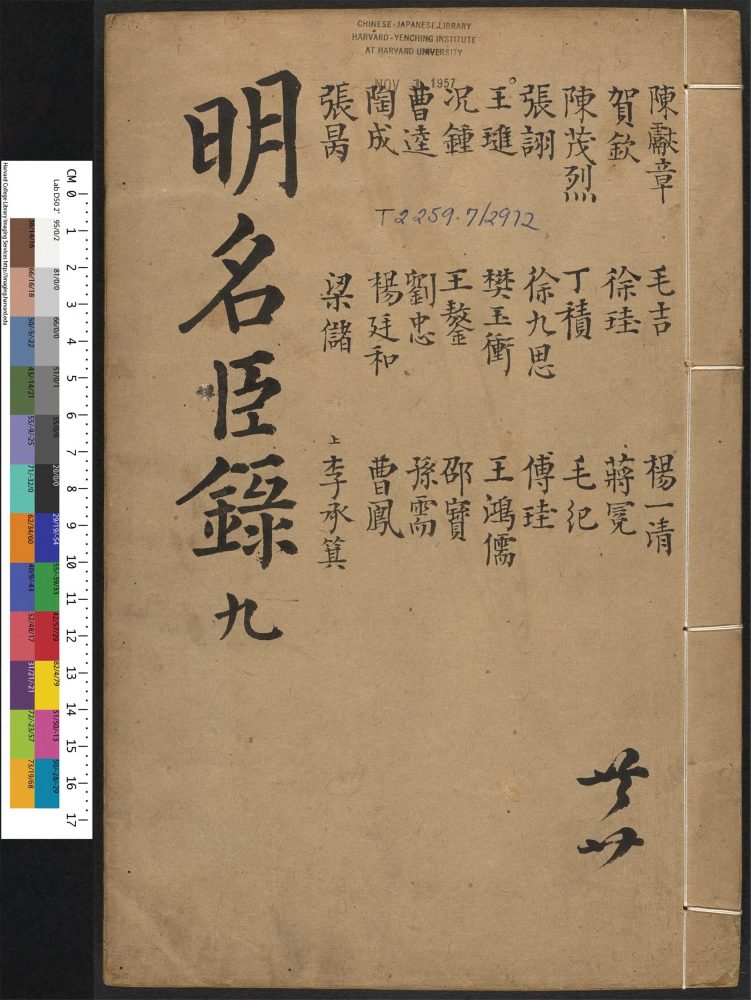 CHINESE-JAPANESE LIBRARY
HARVARD-YENCHING INSTITUTE
AT HARVARD UNIVERSITY
NOV 1957
陳獻章
賀欽
陳茂烈
張詡
王璡
況鍾
曹逵
陶成
張昺
T2259.7/2972
毛吉
徐珪
丁積
徐九思
樊玉衝
王鏊
劉忠
楊廷和
梁儲
楊一清
蔣冕
毛紀
傅珪
王鴻儒
邵寶
孫需
曹鳳
上
李承箕
明名臣錄 九
CM 0 1 2 3 4 5 6 7 8 9 10 11 12 13 14 15 16 17
Harvard College Library Imaging Services http://imaging.harvard.edu